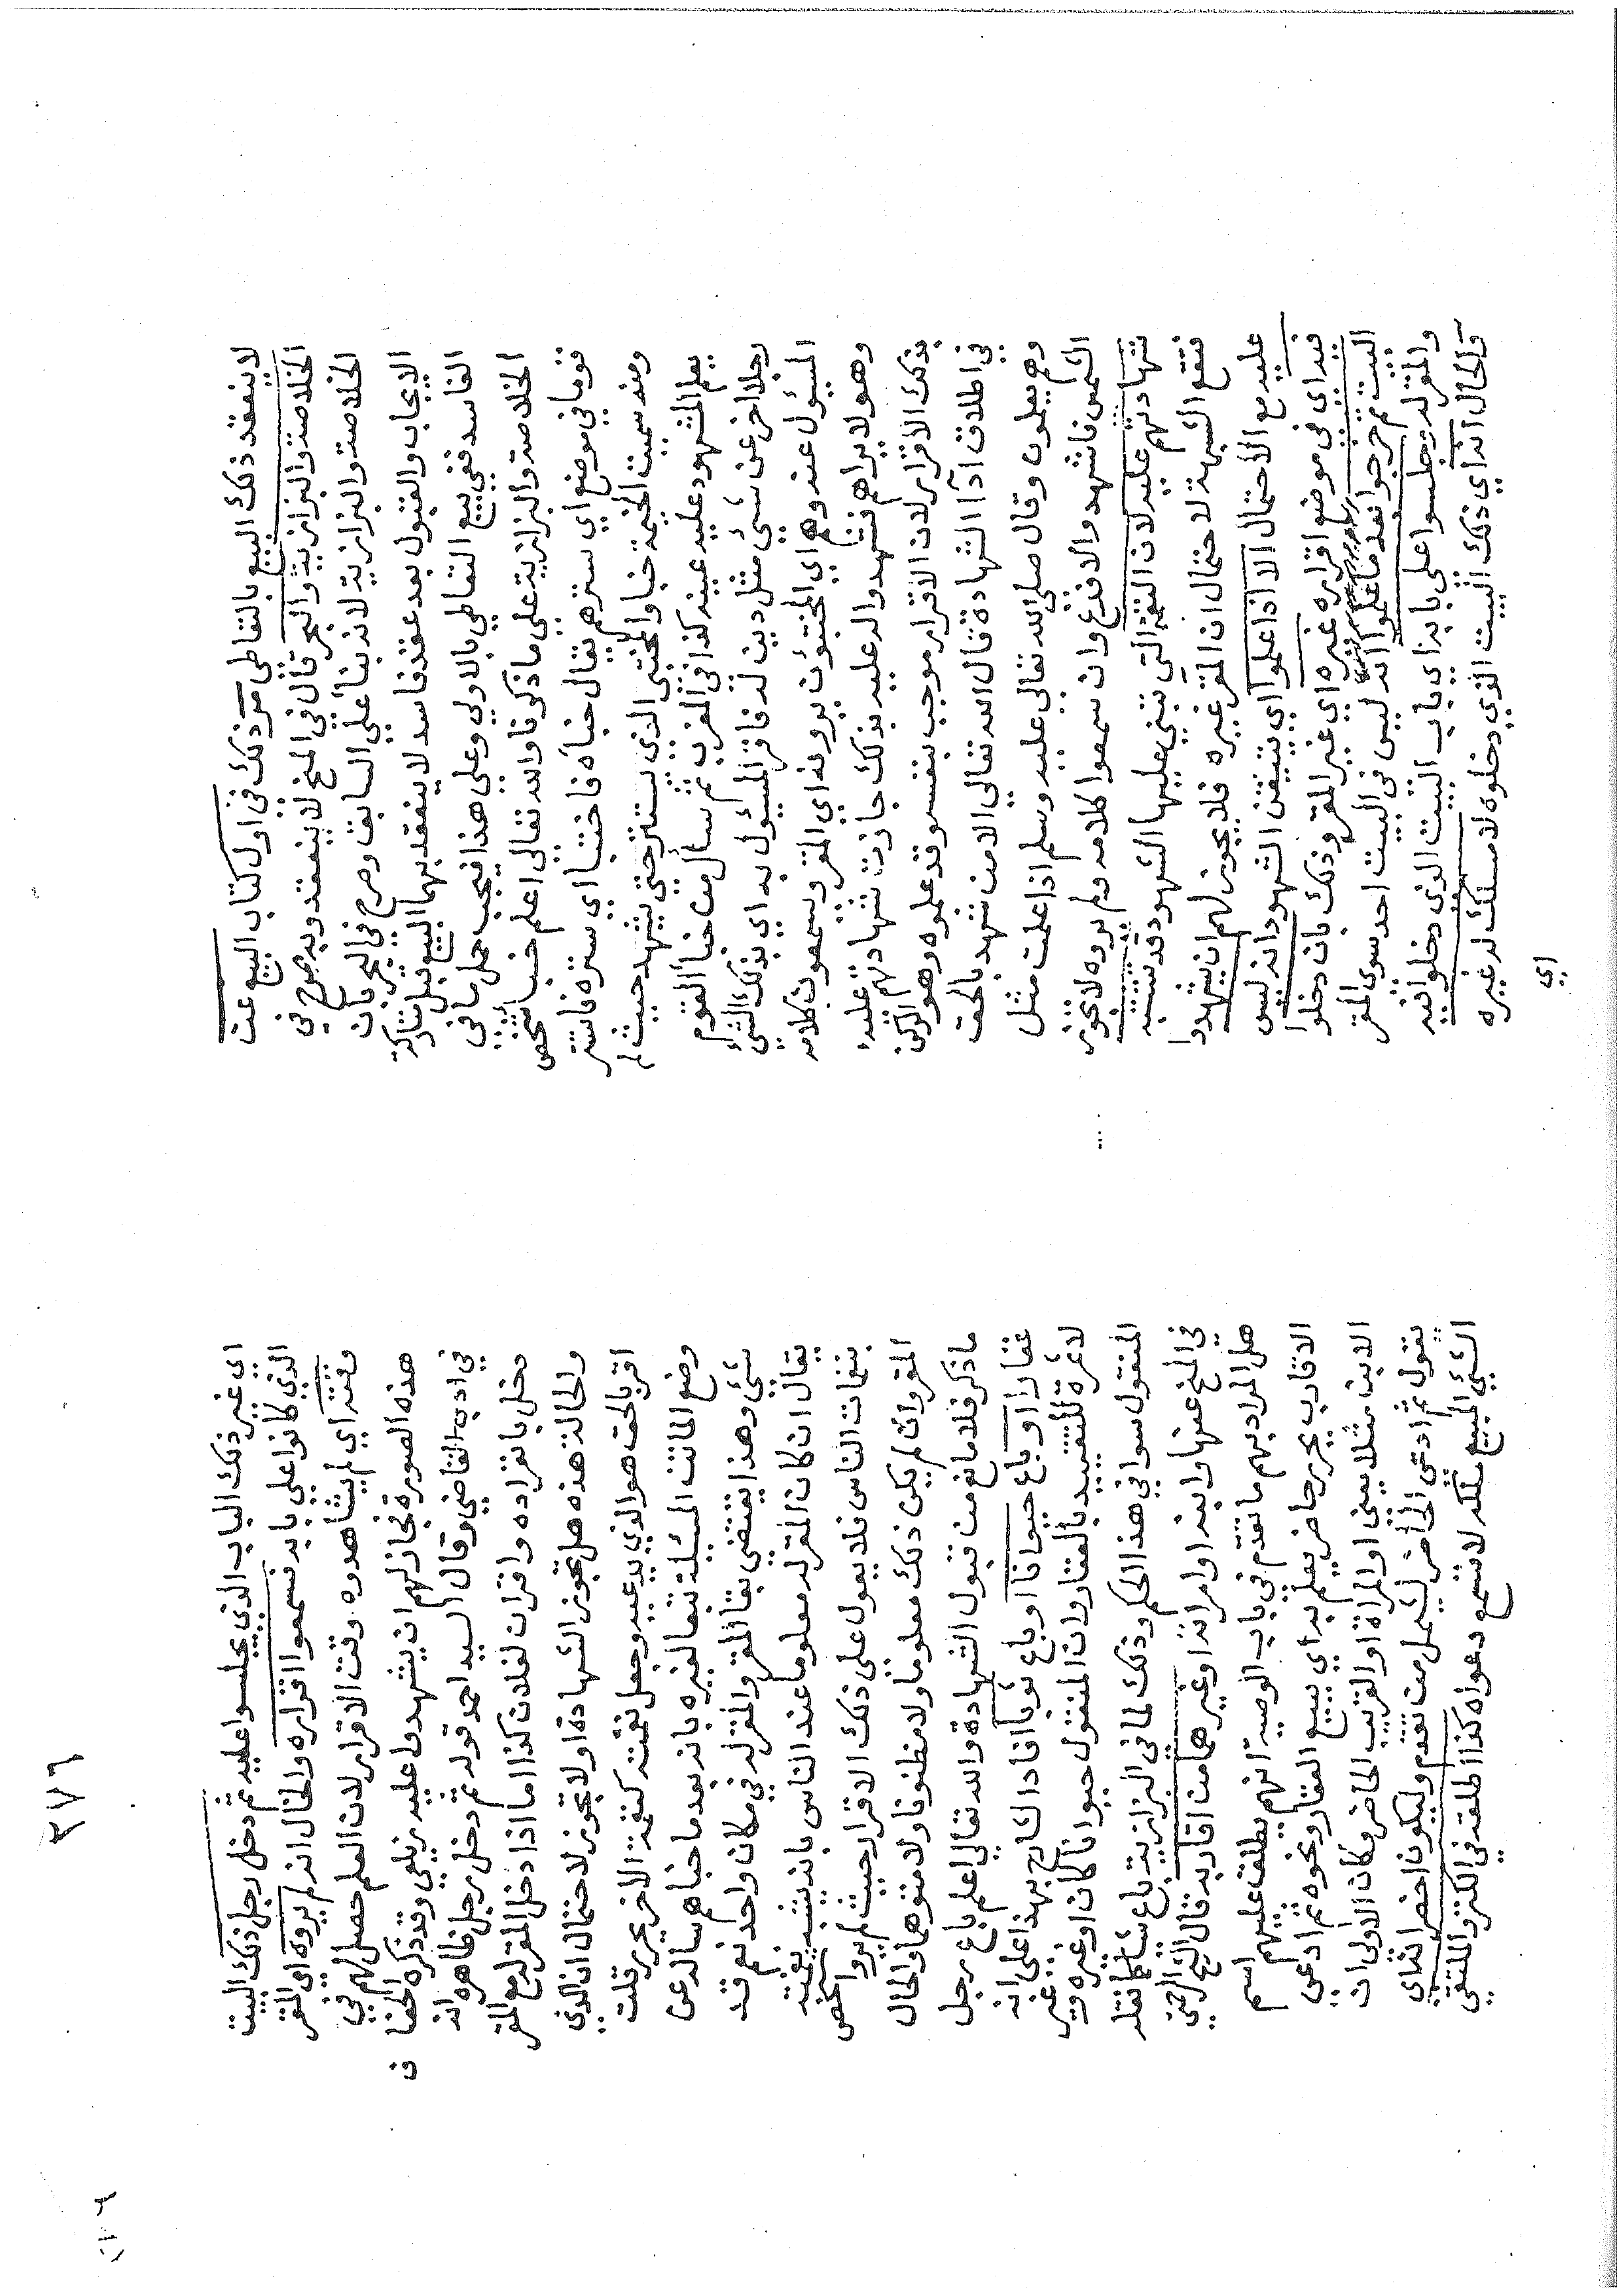 لا ينعقد ذلك البيع بالتعاطي مر ذلك في اول كتاب البيع عن
الخلاصة والبزازية والبحر قال في المنح لا ينعقد وبه صرح في
الخلاصة والبزازية لانه بناء علي السابق وصرح في البحر بان
الايجاب والقبول بعد عقد فاسد لا ينعقد بهما البيع قبل متاركة
الفاسد ففي بيع التعاطي بالاولي وعلي هذا فيجب حمل ما في
الخلاصة والبزازية علي ما ذكرنا والله تعالي اعلم خبأ شخص
قوما في موضع اي سترهم يقال خبأه فاختبأ اي ستره فاستتر
ومنه سميت الخيمة خبا والمختبي الذي استتر حتي يشهد حيث لم
يعلم المشهود عليه عينه كذا في المغرب ثم سأل من خبأ القوم
رجلا اخر عن شيء مثل دين له فاقر المسئول به اي بذلك الشيء
المسئول عنه وهم اي المختبؤن يرونه اي المقر ويسمعون كلامه
وهو لا يراهم فشهدوا له عليه بذلك جازت شهادتهم عليه
بذلك الاقرار لان الاقرار موجب بنفسه وقد علموه وهو الركن
في اطلاق اداء الشهادة قال الله تعالي الا من شهد بالحق
وهم يعلمون وقال صلي الله تعالي عليه وسلم اذا علمت مثل
الشمس فاشهد والا فدع وان سمعوا كلامه ولم يروه لا تجوز
شهادتهم عليه لان النغمة التي تبتني عليها الشهود قد تشتبه
فتقع الشبهة لاحتمال ان المقر غيره فلا يجوز لهم ان يشهدوا
عليه مع الاحتمال الا اذا علموا اي تيقن الشهود انه ليس
فيه اي في موضع اقراره غيره اي غير المقر وذلك بان دخلوا
البيت ثم خرجوا بعد ما علموا انه ليس في البيت احد سوي المقر
والمقر له وجلسوا علي بابه اي باب البيت الذي دخلوا فيه
والحال انه اي ذلك البيت الذي دخلوه لا مسلك له غيره
اي
٢٧٦
اي غير ذلك الباب الذي جلسوا عليه ثم دخل رجل ذلك البيت
الذي كانوا علي بابه فسمعوا اقراره والحال انه لم يروه اي المقر
وقته اي لم يشاهدوه وقت الاقرار لان العلم حصل لهم في
هذه الصورة فجاز لهم ان يشهدوا عليه زيلعي وقد ذكره الخصا
ف
في ادب القاضي وقال السيد احمد قوله ثم دخل رجل ظاهره انه
دخل بانفراده واقر ان لفلان كذا اما اذا دخل المقر له مع المقر
والحالة هذه هل تجوز الشهادة او لا تجوز لاحتمال ان الذي
اقر بالحق هو الذي يدعيه وجعل نغمته كنغمة الاخر يحرر قلت
وضع الماتن المسئلة تبعا لغيره بانه بعد ما خباهم سأله عن
شيء وهذا يقتضي بقا المقر والمقر له في مكان واحد نعم قد
يقال ان كان المقر له معلوما عند الناس بانه يشبه نغمته
بنغمات الناس فلا يعول علي ذلك الاقرار حيث لم يروا شخص
المقر وان لم يكن ذلك معلوما ولا مظنونا ولا متوهما والحال
ما ذكر فلا مانع من قبول الشهادة والله تعالي اعلم باع رجل
عقارا او باع حيوانا او باع ثوبا افاد الشارح بهذا علي انه
لا عبرة للتقييد بالعقار وان المنقول حيوانا كان او غيره وغير
المنقول سوا في هذا الحكم وذلك لما في البزازية باع شيأ كما نقله
في المنح عنها وابنه او امراته او غيرهما من اقاربه قال الشيخ الرحمتي
هل المراد بهم ما تقدم في باب الوصية انهم يطلق عليهم اسم
الاقارب يحرر حاضر يعلم به اي ببيع العقار ونحوه ثم ادعي
الابن مثلا يعني او المراة او القريب الحاضر وكان الاولي ان
يقول ثم ادعي الحاضر ليشمل من تقدم وليكون اخصر انه اي
الشيء المبيع ملكه لا تسمع دعواه كذا اطلقه في الكنز والملتقي